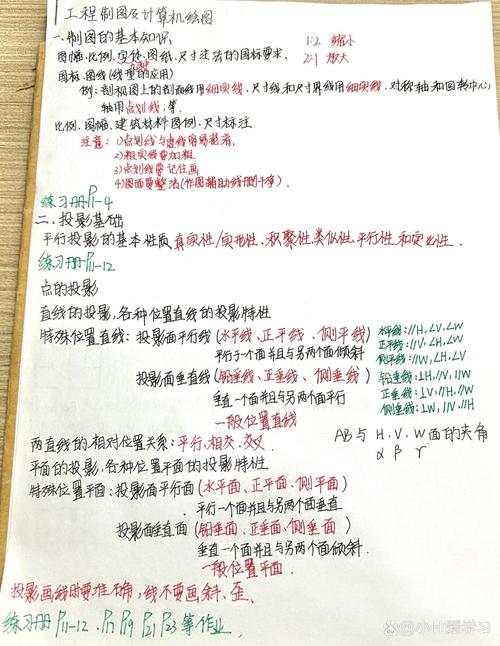 工程制图及计算机绘图
一、制图的基本知识
1:2 缩小
图幅、比例、字体、图纸、尺寸注法的国标要求、
2:1 放大
国标、图线(线型的应用)
例:剖视图上的剖面线用细实线、尺寸线和尺寸界线用细实线、对称轴和回转中心
轴用点划线,等.
比例、图幅、建筑材料图例、尺寸标注
注意: 1)点划线与虚线容易混淆,
2)粗实线要加粗.
3)点划线要记住画
4)图面要整洁(作图辅助线删干净).
练习册P1-4
二、投影基础
平行投影的基本性质、真实性/实形性、积聚性、类似性、平行性、和定比性.
练习册P11-12
点的投影
直线的投影,各种位置直线的投影特性
特殊位置直线:投影面平行线(水平线、正平线、侧平线)
水平线://H,∠V,∠W
正平线://V,∠H,∠W
侧平线://W,∠H,∠V
平行于一个面并且与另两个面倾斜
投影面垂直线(铅垂线、正垂线、侧垂线)
铅垂线:⊥H,//V,//W
正垂线:⊥V,//H,//W
侧垂线:⊥W,//V,//H
垂直一个面并且与另两个面平行
一般位置直线
AB与H、V、W面的夹角
α β γ
两直线的相对位置关系:平行、相交、交叉.
平面的投影,各种位置平面的投影特性
特殊位置平面:投影面平行面(水平面、正平面、侧平面)
平行一个面并且与另两个面垂直
投影面垂直面(铅垂面、正垂面、侧垂面)
垂直一个面并且与另两个面倾斜.
一般位置平面.
投影画线时要准确,线不要画斜、歪、
练习册 P11-12、P17 P19 P21 P23 等作业.